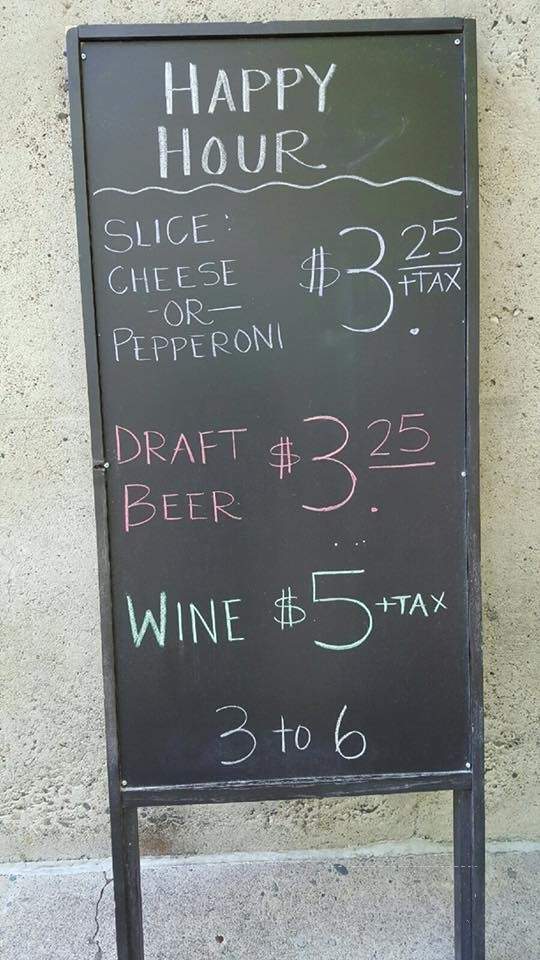 HAPPY
HOUR
SLICE:
CHEESE
-OR-
PEPPERONI
$3.25
+TAX
DRAFT
BEER
$3.25
WINE $5 +TAX
3 to 6